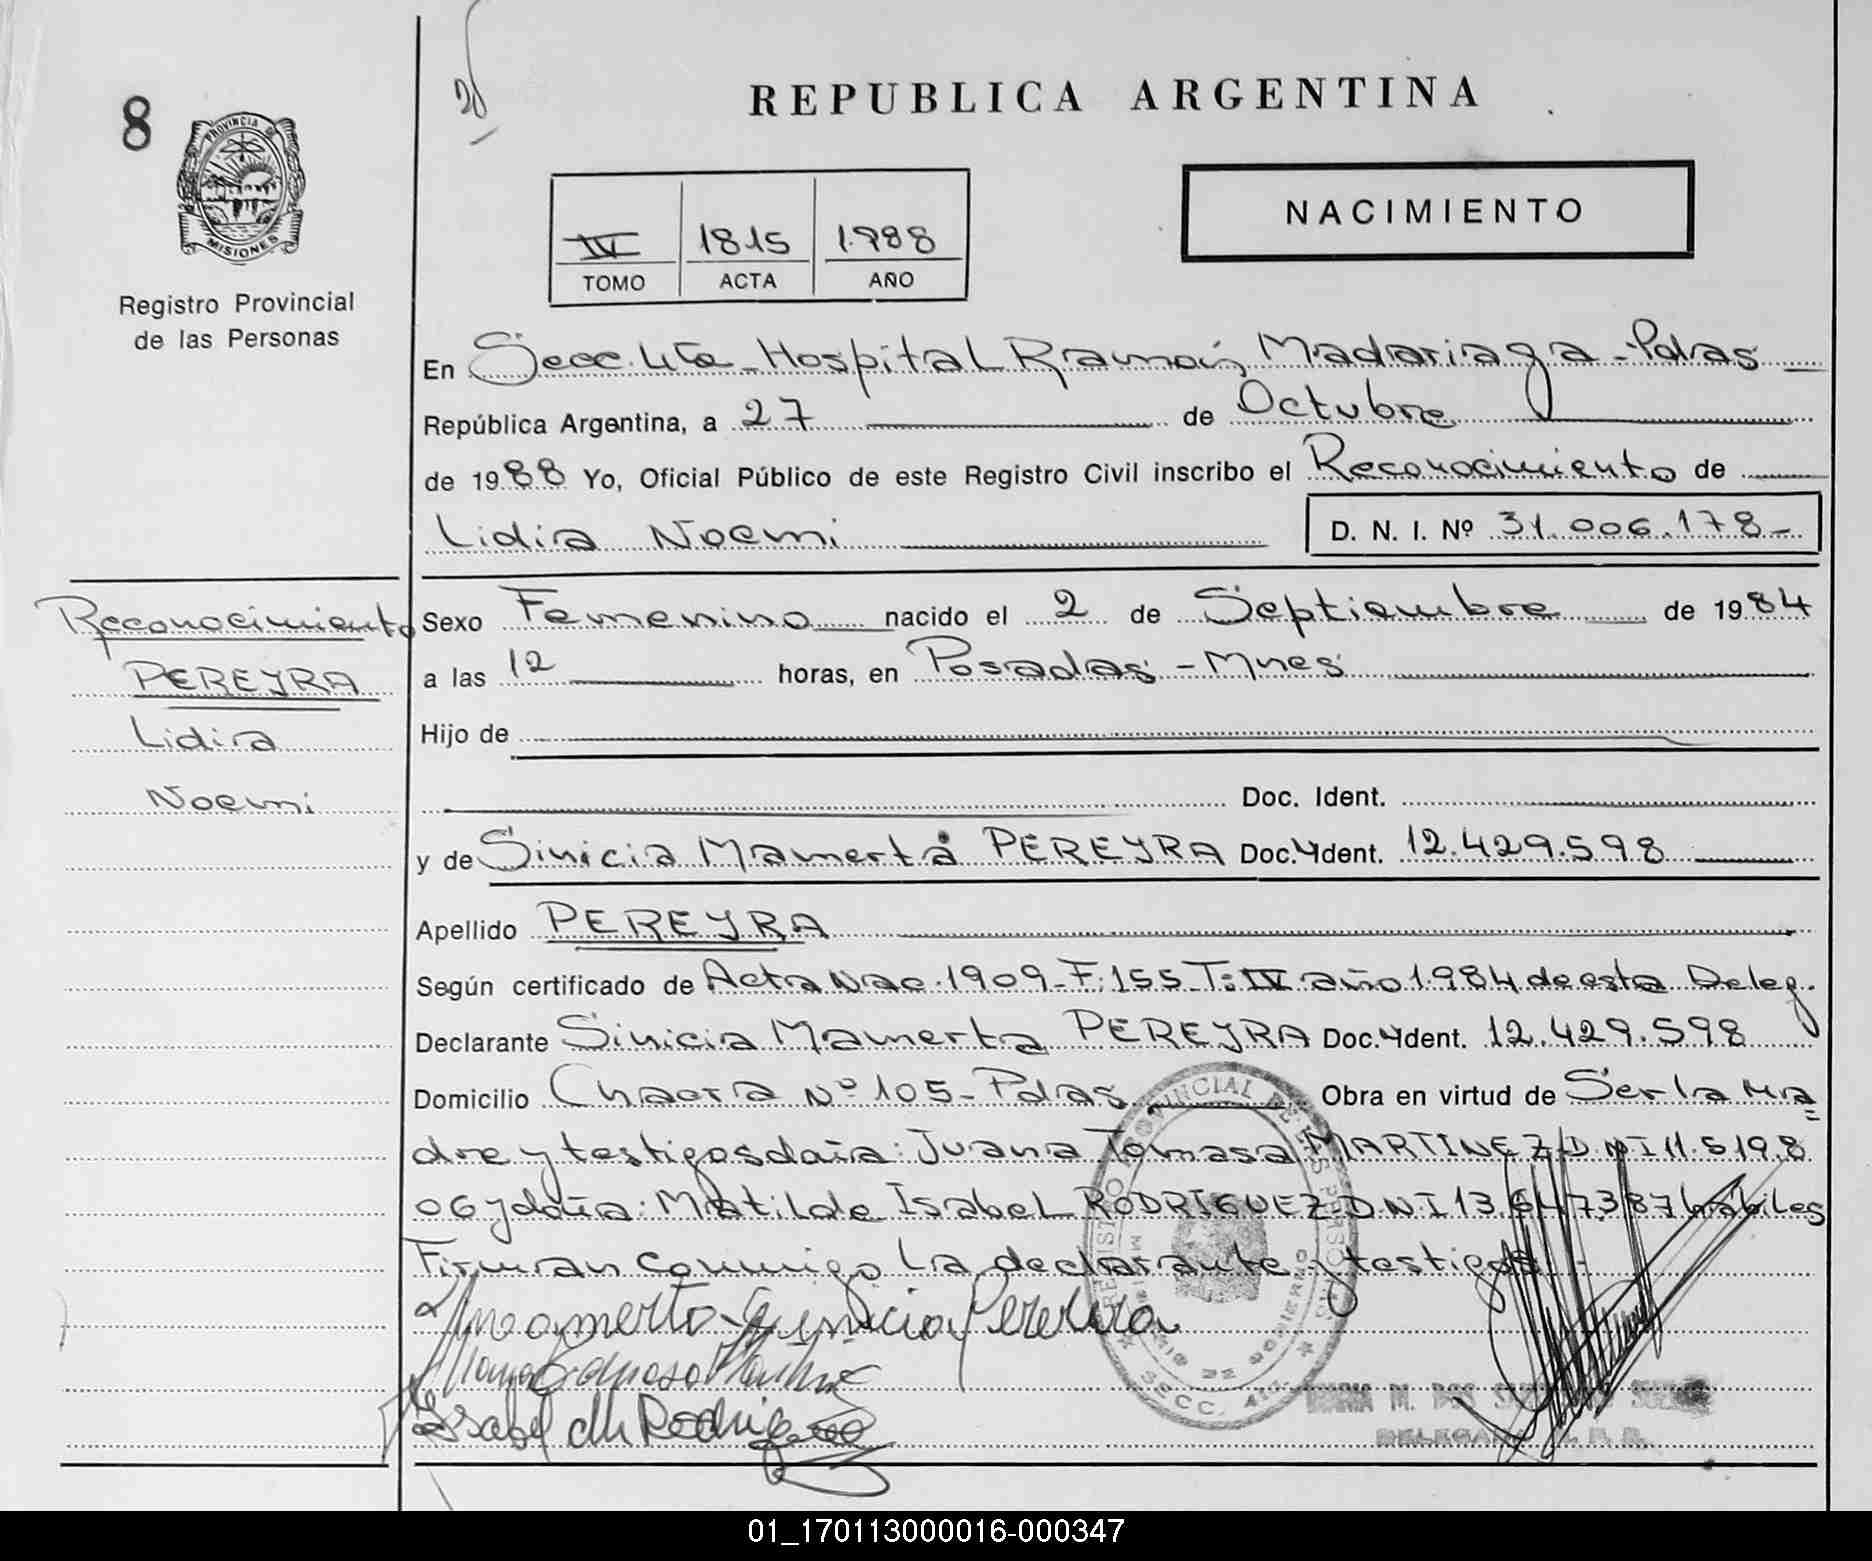 8
REPUBLICA ARGENTINA
PROVINCIA DE
MISIONES
NACIMIENTO
IV 1815 1.988
TOMO ACTA AÑO
Registro Provincial
de las Personas
En Secc. 4ta - Hospital Ramón Madariaga - Pdas
República Argentina, a 27 de Octubre
de 1988 Yo, Oficial Público de este Registro Civil inscribo el Reconocimiento de
Lidia Noemi D. N. I. Nº 31.006.178-
Reconocimiento
PEREYRA
Lidia
Noemi
Sexo Femenino nacido el 2 de Septiembre de 1984
a las 12 horas, en Posadas - Mnes
Hijo de
Doc. Ident.
y de Sinicia Mamerta PEREYRA Doc. Ident. 12.429.598
Apellido PEREYRA
Según certificado de Acta Nac. 1909 - F: 155 - T: IV año 1984 de esta Deleg.
Declarante Sinicia Mamerta PEREYRA Doc. Ident. 12.429.598
Domicilio Chacra Nº 105 - Pdas Obra en virtud de Ser la Ma=
dre y testigos doña: Juana Tomasa MARTINEZ D.N.I 11.519.8
06 y doña: Matilde Isabel RODRIGUEZ D.N.I 13.647.387 hábiles
Firman conmigo la declarante y testigos -
REGISTRO PROVINCIAL DE LAS PERSONAS
SECC. 4ta.
DELEGADA R. P. P.
01_170113000016-000347